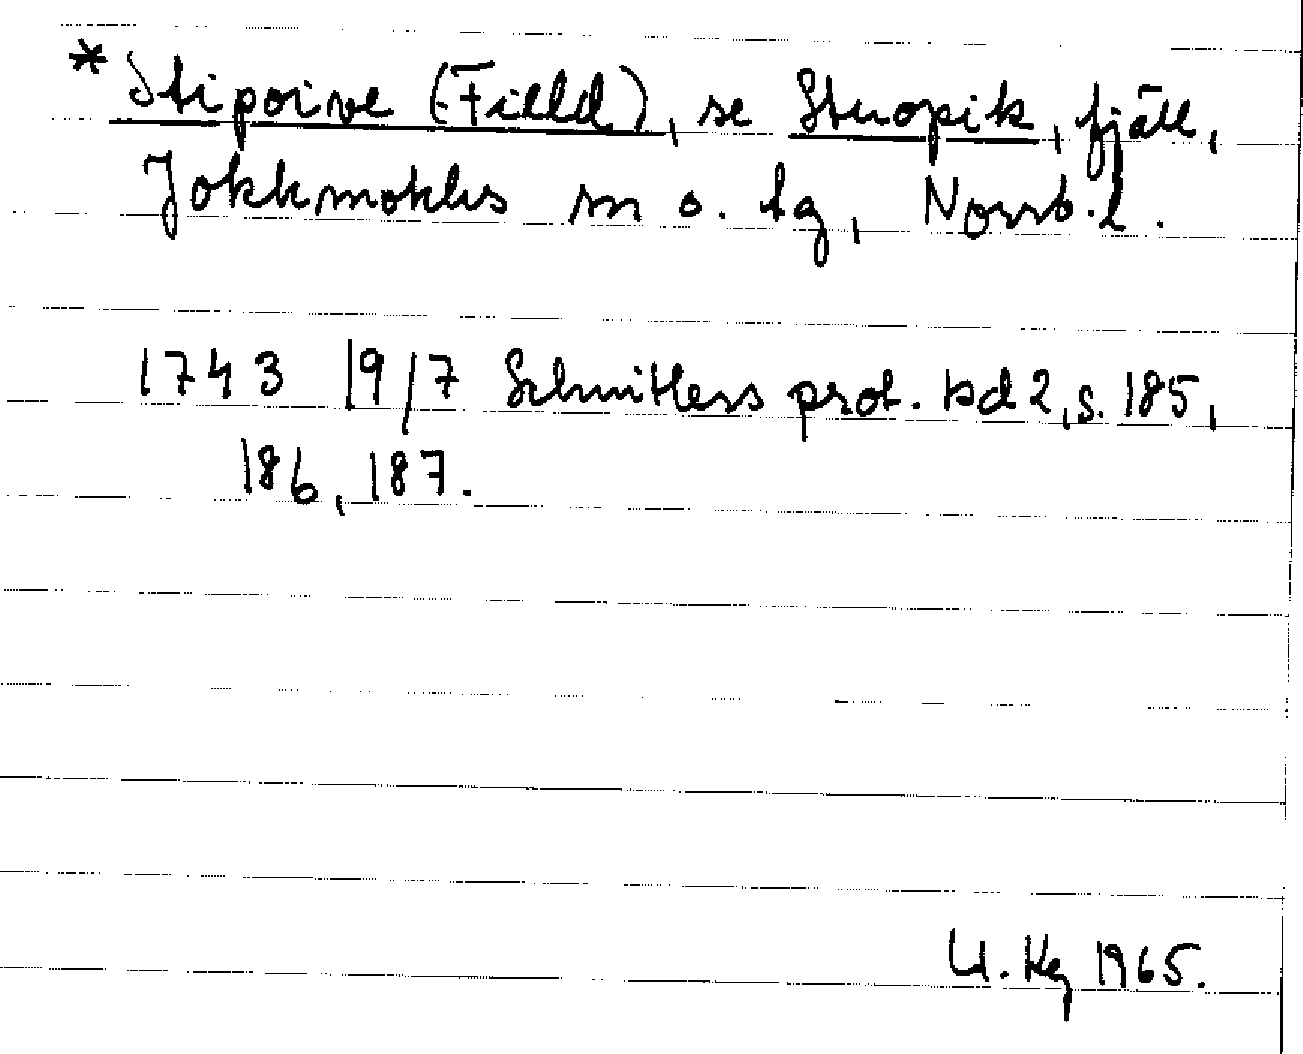 * Stipoive (-Field), se Stuopik, fjäll,
Jokkmokks sn o. tg, Norrb. l.
1743 19/7 Schnitlers prot. bd 2, s. 185,
186, 187.
U. Kg 1965.